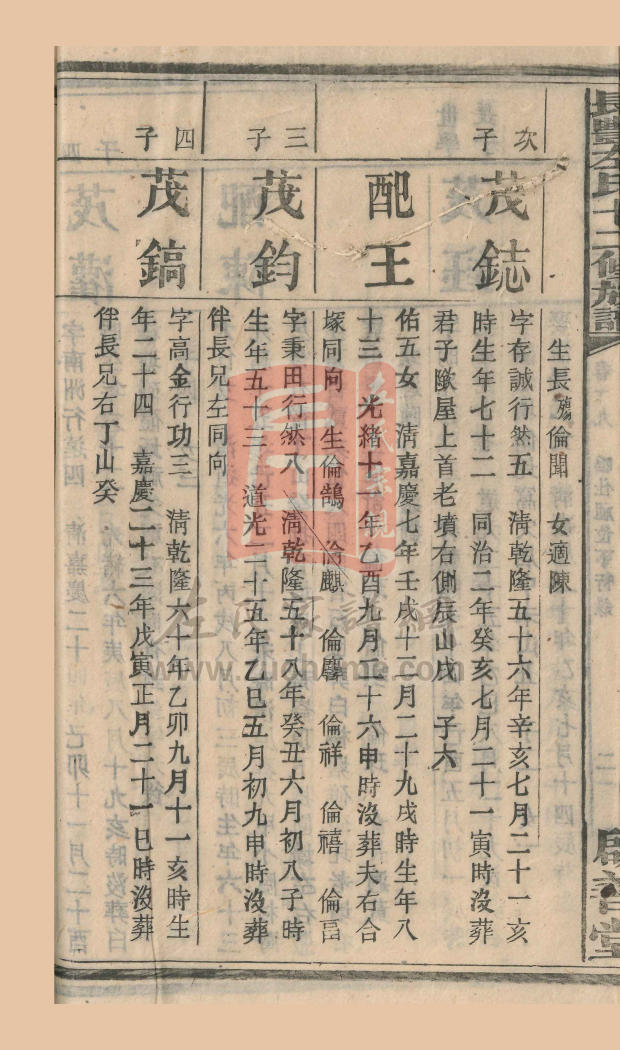 長豐左氏十二修族譜
啟善堂
生長殤倫聞 女適陳
次子
茂鋕
字存誠行然五 清乾隆五十六年辛亥七月二十一亥
時生年七十二 同治二年癸亥七月二十一寅時沒葬
君子隞屋上首老墳右側辰山戌 子六
配王
佑五女 清嘉慶七年壬戌十二月二十九戌時生年八
十三 光緒十一年乙酉九月二十六申時沒葬夫右合
塚同向 生倫鵠 倫麒 倫麐 倫祥 倫禧 倫
三子
茂鈞
字秉田行然八 清乾隆五十八年癸丑六月初八子時
生年五十三 道光二十五年乙巳五月初九申時沒葬
伴長兄左同向
四子
茂鎬
字高金行功三 清乾隆六十年乙卯九月十一亥時生
年二十四 嘉慶二十三年戊寅正月二十一巳時沒葬
伴長兄右丁山癸
www.zuohome.com